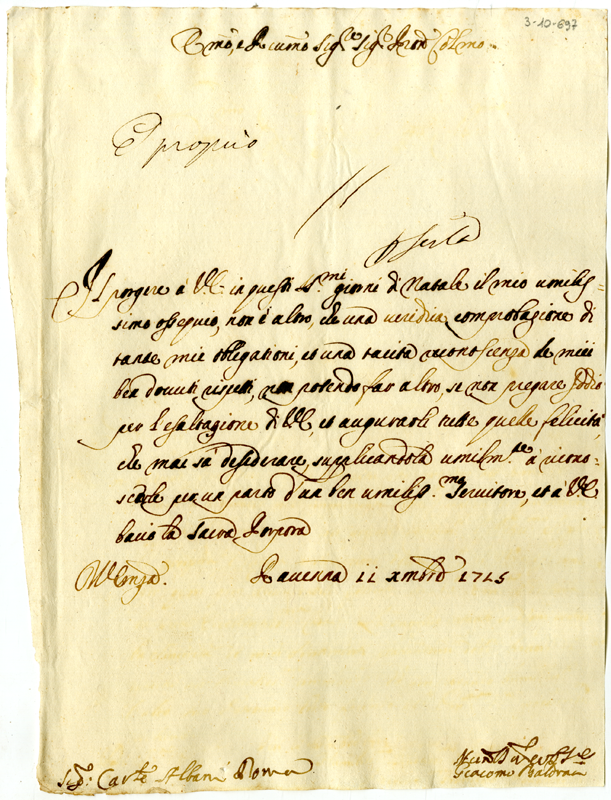 3-10-697
Emo, e Rmo Sigre Sigr Pron Colmo
E proprio
Il porgere à V.E. in questi S.mi giorni di Natale il mio umilis=
simo ossequio, non è altro, che una veridica comprobazione di
tante mie obbligationi, et una tacita riconoscenza de miei
ben dovuti rispetti, non potendo far altro, se non pregare Iddio
per l'esaltazione di V.E, et augurarli tutte quelle felicità,
che mai sà desiderare, supplicandola umilm.te à ricono=
scerle per un parto d'un ben umiliss.mo Servitore, et à V.E.
bacio la sacra Porpora
Ravenna 11 Xmbre 1715
Sigr Carle Albani Roma
Giacomo Baldrati